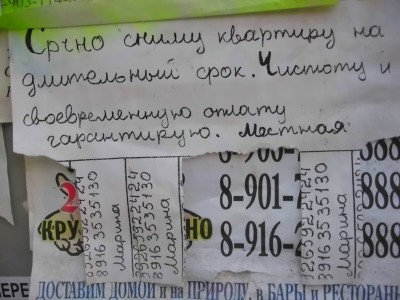 Срчно сниму квартиру на
длительный срок. Чистоту и
своевременную оплату
гарантирую. Местная
8-901-
8-916-
888
888
888
2
КРУ
НО
89265922424
8916 3535130
Марина
89265922424
8916 3535130
Марина
89265922424
8916 3535130
Марина
ДОСТАВИМ ДОМОЙ и на ПРИРОДУ, в БАРЫ и РЕСТОРАН